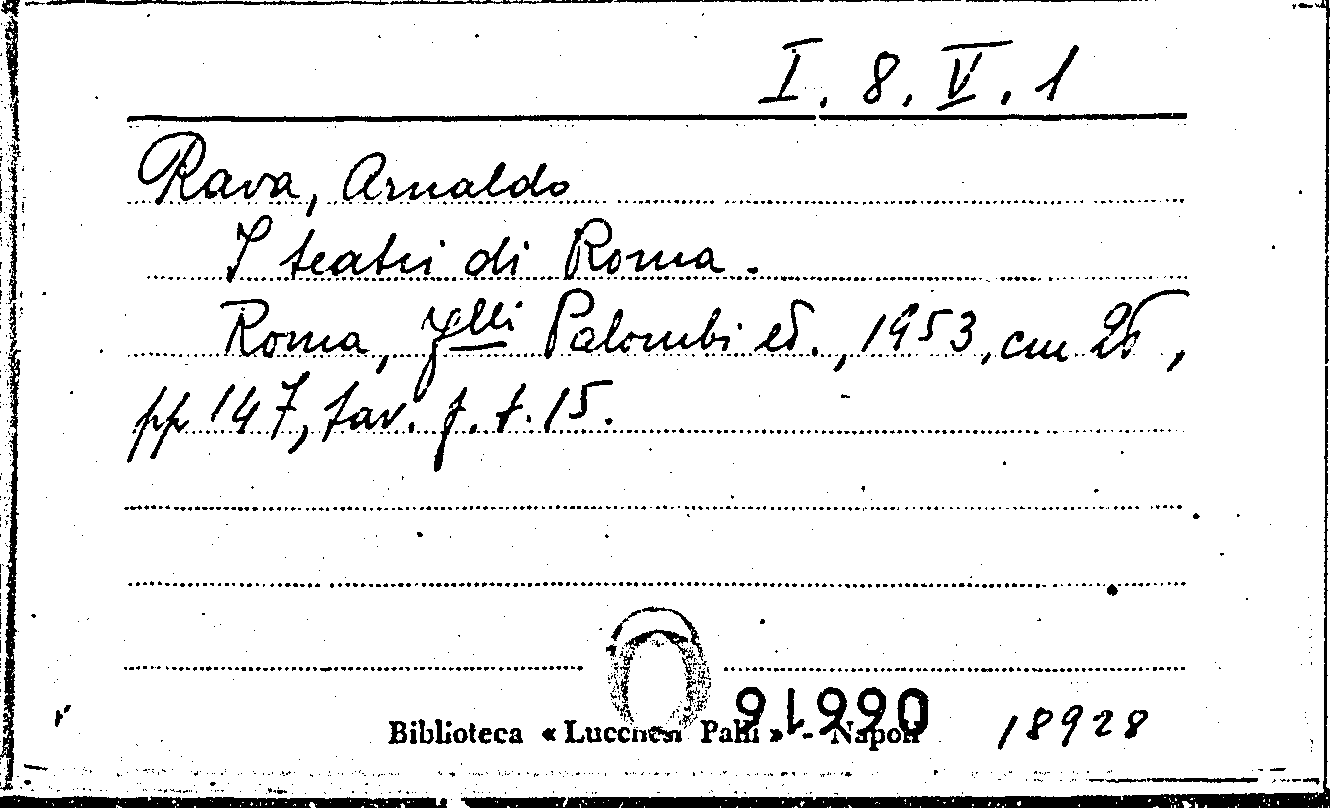 I. 8. V. 1
Rava, Arnaldo
I teatri di Roma.
Roma, f.lli Palombi ed., 1953, cm 25,
pp 147, tav. f. t. 15.
Biblioteca « Lucchesi Palli » - Napoli
18928